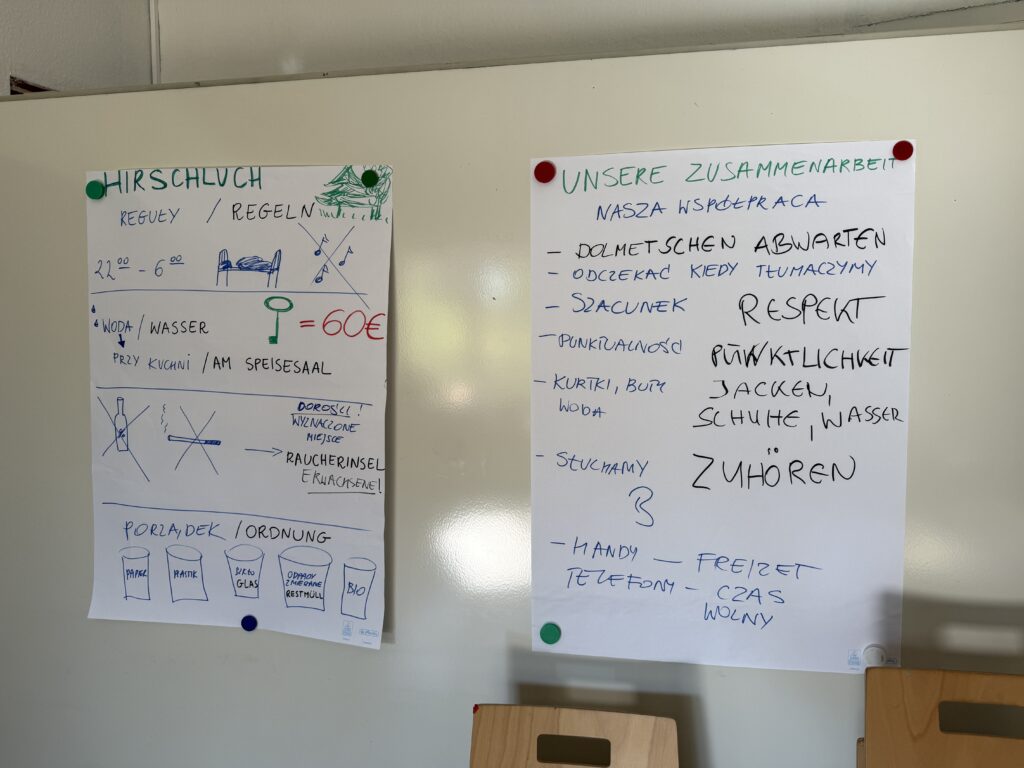 HIRSCHLUCH
REGUŁY / REGELN
22⁰⁰ - 6⁰⁰
= 60€
WODA / WASSER
PRZY KUCHNI / AM SPEISESAAL
DOROŚLI!
WYZNACZONE
MIEJSCE
RAUCHERINSEL
ERWACHSENE!
PORZĄDEK / ORDNUNG
PAPIER
PLASTIK
SZKŁO
GLAS
ODPADY
ZMIESZANE
RESTMÜLL
BIO
UNSERE ZUSAMMENARBEIT
NASZA WSPÓŁPRACA
- DOLMETSCHEN ABWARTEN
- ODCZEKAĆ KIEDY TŁUMACZYMY
- SZACUNEK RESPEKT
- PUNKTUALNOŚĆ PÜNKTLICHKEIT
- KURTKI, BUTY JACKEN,
WODA SCHUHE, WASSER
- SŁUCHAMY ZUHÖREN
- HANDY - FREIZET
TELEFONY - CZAS
WOLNY